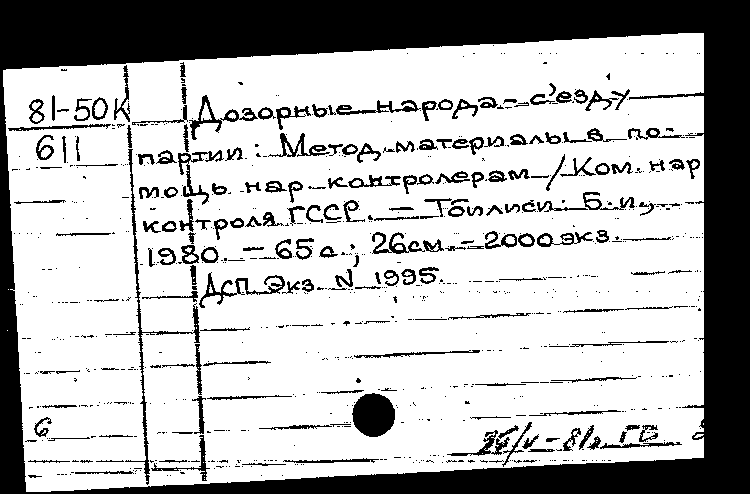 81-50К Дозорные народа - с'езду
611 партии: Метод. материалы в по-
мощь нар. контролерам / Ком. нар
контроля ГССР. - Тбилиси: Б. и.,
1980. - 65 с.; 26 см. - 2000 экз.
ДСП. Экз. N 1995.
6
-81г. ГБ